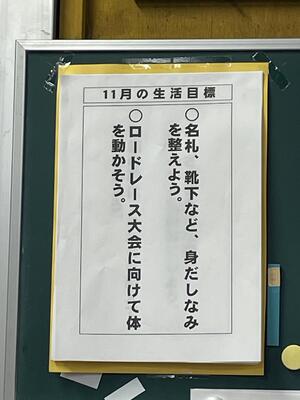 11月の生活目標
○名札、靴下など、身だしなみ
を整えよう。
○ロードレース大会に向けて体
を動かそう。